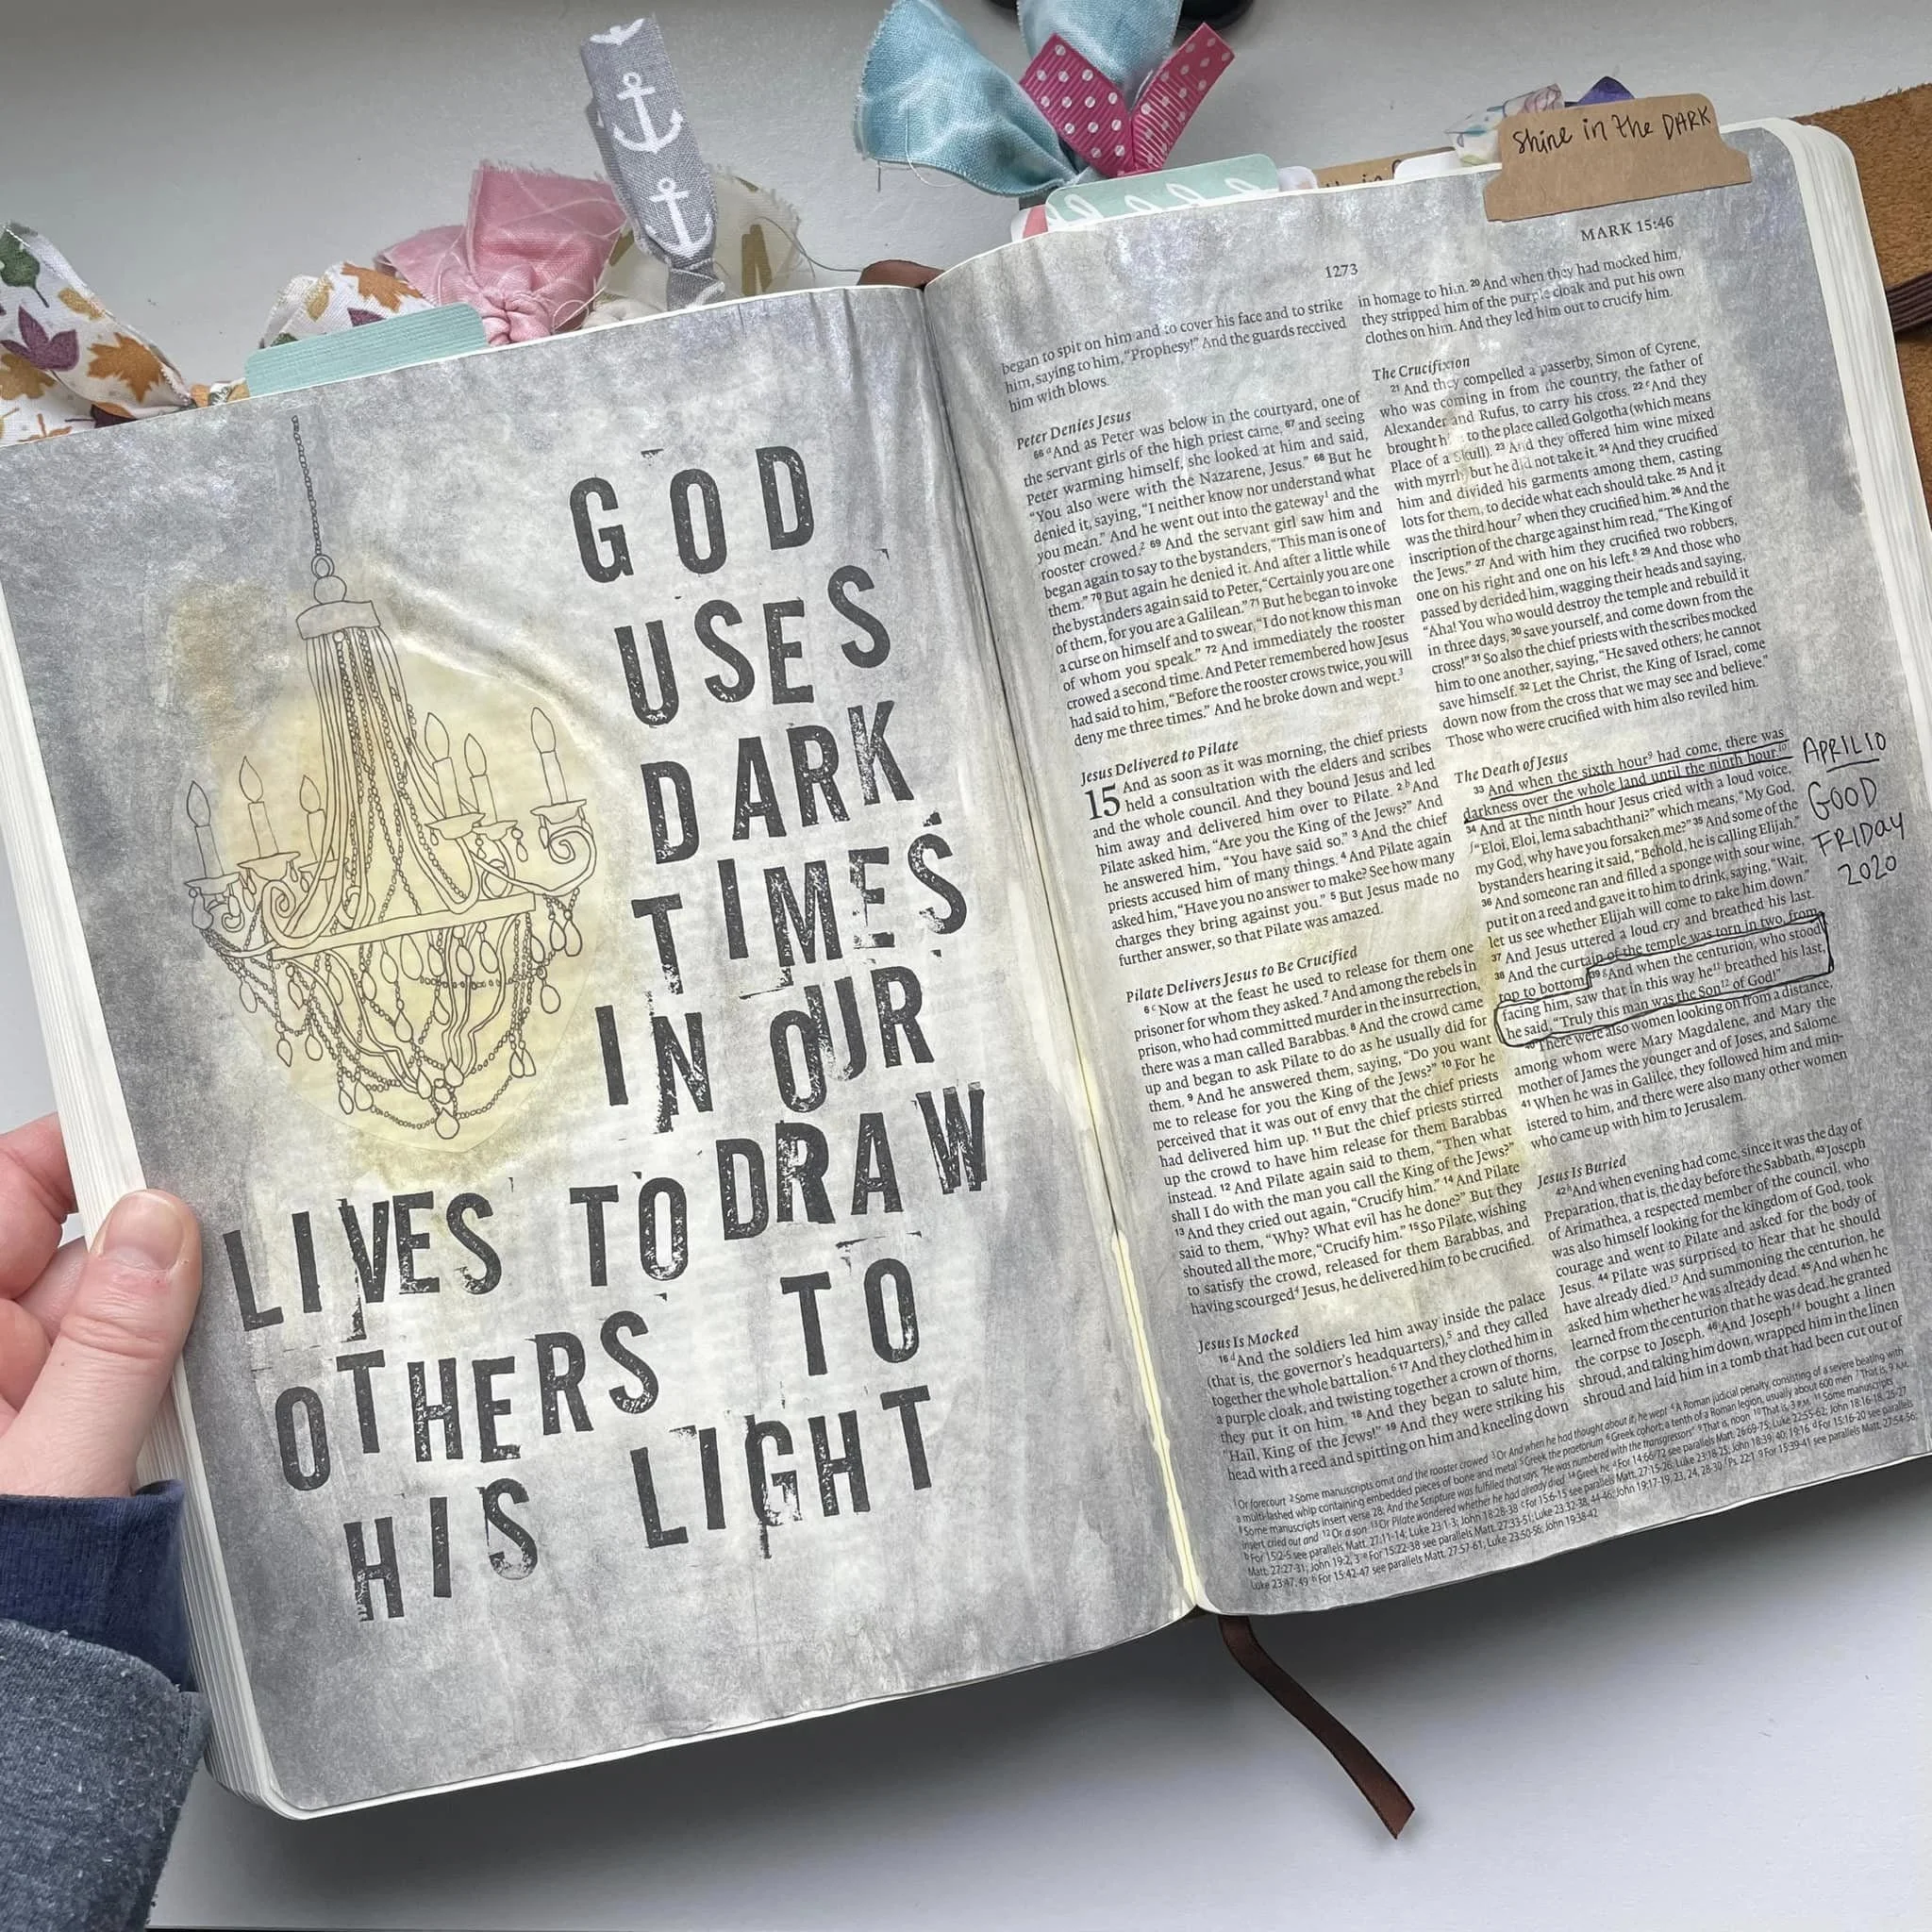 GOD
USES
DARK
TIMES
IN OUR
LIVES TO DRAW
OTHERS TO
HIS LIGHT
Shine in the DARK
1273
MARK 15:46
began to spit on him and to cover his face and to strike
him, saying to him, "Prophesy!" And the guards received
him with blows.
Peter Denies Jesus
66 d And as Peter was below in the courtyard, one of
the servant girls of the high priest came, 67 and seeing
Peter warming himself, she looked at him and said,
"You also were with the Nazarene, Jesus." 68 But he
denied it, saying, "I neither know nor understand what
you mean." And he went out into the gateway1 and the
rooster crowed.2 69 And the servant girl saw him and
began again to say to the bystanders, "This man is one of
them." 70 But again he denied it. And after a little while
the bystanders again said to Peter, "Certainly you are one
of them, for you are a Galilean." 71 But he began to invoke
a curse on himself and to swear, "I do not know this man
of whom you speak." 72 And immediately the rooster
crowed a second time. And Peter remembered how Jesus
had said to him, "Before the rooster crows twice, you will
deny me three times." And he broke down and wept.3
Jesus Delivered to Pilate
15 And as soon as it was morning, the chief priests
held a consultation with the elders and scribes
and the whole council. And they bound Jesus and led
him away and delivered him over to Pilate. 2 b And
Pilate asked him, "Are you the King of the Jews?" And
he answered him, "You have said so." 3 And the chief
priests accused him of many things. 4 And Pilate again
asked him, "Have you no answer to make? See how many
charges they bring against you." 5 But Jesus made no
further answer, so that Pilate was amazed.
Pilate Delivers Jesus to Be Crucified
6 c Now at the feast he used to release for them one
prisoner for whom they asked. 7 And among the rebels in
prison, who had committed murder in the insurrection,
there was a man called Barabbas. 8 And the crowd came
up and began to ask Pilate to do as he usually did for
them. 9 And he answered them, saying, "Do you want
me to release for you the King of the Jews?" 10 For he
perceived that it was out of envy that the chief priests
had delivered him up. 11 But the chief priests stirred
up the crowd to have him release for them Barabbas
instead. 12 And Pilate again said to them, "Then what
shall I do with the man you call the King of the Jews?"
13 And they cried out again, "Crucify him." 14 And Pilate
said to them, "Why? What evil has he done?" But they
shouted all the more, "Crucify him." 15 So Pilate, wishing
to satisfy the crowd, released for them Barabbas, and
having scourged4 Jesus, he delivered him to be crucified.
Jesus Is Mocked
16 d And the soldiers led him away inside the palace
(that is, the governor's headquarters),5 and they called
together the whole battalion.6 17 And they clothed him in
a purple cloak, and twisting together a crown of thorns,
they put it on him. 18 And they began to salute him,
"Hail, King of the Jews!" 19 And they were striking his
head with a reed and spitting on him and kneeling down
in homage to him. 20 And when they had mocked him,
they stripped him of the purple cloak and put his own
clothes on him. And they led him out to crucify him.
The Crucifixion
21 And they compelled a passerby, Simon of Cyrene,
who was coming in from the country, the father of
Alexander and Rufus, to carry his cross. 22 e And they
brought h to the place called Golgotha (which means
Place of a Skull). 23 And they offered him wine mixed
with myrrh, but he did not take it. 24 And they crucified
him and divided his garments among them, casting
lots for them, to decide what each should take. 25 And it
was the third hour7 when they crucified him. 26 And the
inscription of the charge against him read, "The King of
the Jews." 27 And with him they crucified two robbers,
one on his right and one on his left.8 29 And those who
passed by derided him, wagging their heads and saying,
"Aha! You who would destroy the temple and rebuild it
in three days, 30 save yourself, and come down from the
cross!" 31 So also the chief priests with the scribes mocked
him to one another, saying, "He saved others; he cannot
save himself. 32 Let the Christ, the King of Israel, come
down now from the cross that we may see and believe."
Those who were crucified with him also reviled him.
The Death of Jesus
33 And when the sixth hour9 had come, there was
darkness over the whole land until the ninth hour.10
34 And at the ninth hour Jesus cried with a loud voice,
f "Eloi, Eloi, lema sabachthani?" which means, "My God,
my God, why have you forsaken me?" 35 And some of the
bystanders hearing it said, "Behold, he is calling Elijah."
36 And someone ran and filled a sponge with sour wine,
put it on a reed and gave it to him to drink, saying, "Wait,
let us see whether Elijah will come to take him down."
37 And Jesus uttered a loud cry and breathed his last.
38 And the curtain of the temple was torn in two, from
top to bottom. 39 g And when the centurion, who stood
facing him, saw that in this way he11 breathed his last,
he said, "Truly this man was the Son12 of God!"
40 There were also women looking on from a distance,
among whom were Mary Magdalene, and Mary the
mother of James the younger and of Joses, and Salome.
41 When he was in Galilee, they followed him and min-
istered to him, and there were also many other women
who came up with him to Jerusalem.
Jesus Is Buried
42 h And when evening had come, since it was the day of
Preparation, that is, the day before the Sabbath, 43 Joseph
of Arimathea, a respected member of the council, who
was also himself looking for the kingdom of God, took
courage and went to Pilate and asked for the body of
Jesus. 44 Pilate was surprised to hear that he should
have already died.13 And summoning the centurion, he
asked him whether he was already dead. 45 And when he
learned from the centurion that he was dead, he granted
the corpse to Joseph. 46 And Joseph14 bought a linen
shroud, and taking him down, wrapped him in the linen
shroud and laid him in a tomb that had been cut out of
APRIL 10
GOOD
FRIDAY
2020
1 Or forecourt 2 Some manuscripts omit and the rooster crowed 3 Or And when he had thought about it, he wept 4 A Roman judicial penalty, consisting of a severe beating with
a multi-lashed whip containing embedded pieces of bone and metal 5 Greek the praetorium 6 Greek cohort; a tenth of a Roman legion, usually about 600 men 7 That is, 9 A.M.
8 Some manuscripts insert verse 28: And the Scripture was fulfilled that says, "He was numbered with the transgressors" 9 That is, noon 10 That is, 3 P.M. 11 Some manuscripts
insert cried out and 12 Or a son 13 Or Pilate wondered whether he had already died 14 Greek he